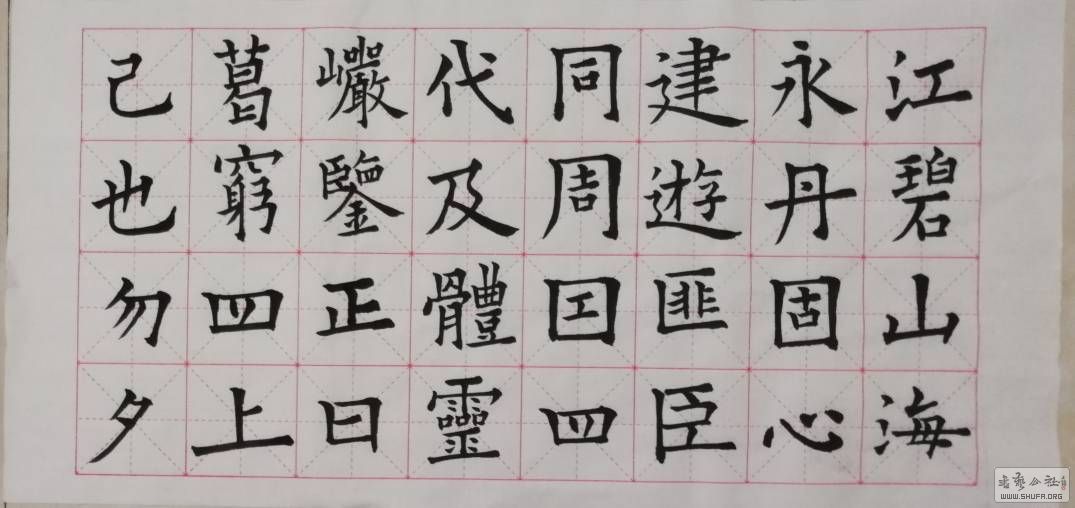 江碧山海
永丹固心
建遊匪臣
同周囙四
代及體靈
巗鑒正曰
葛窮四上
己也勿夕
書藝公社
WWW.SHUFA.ORG